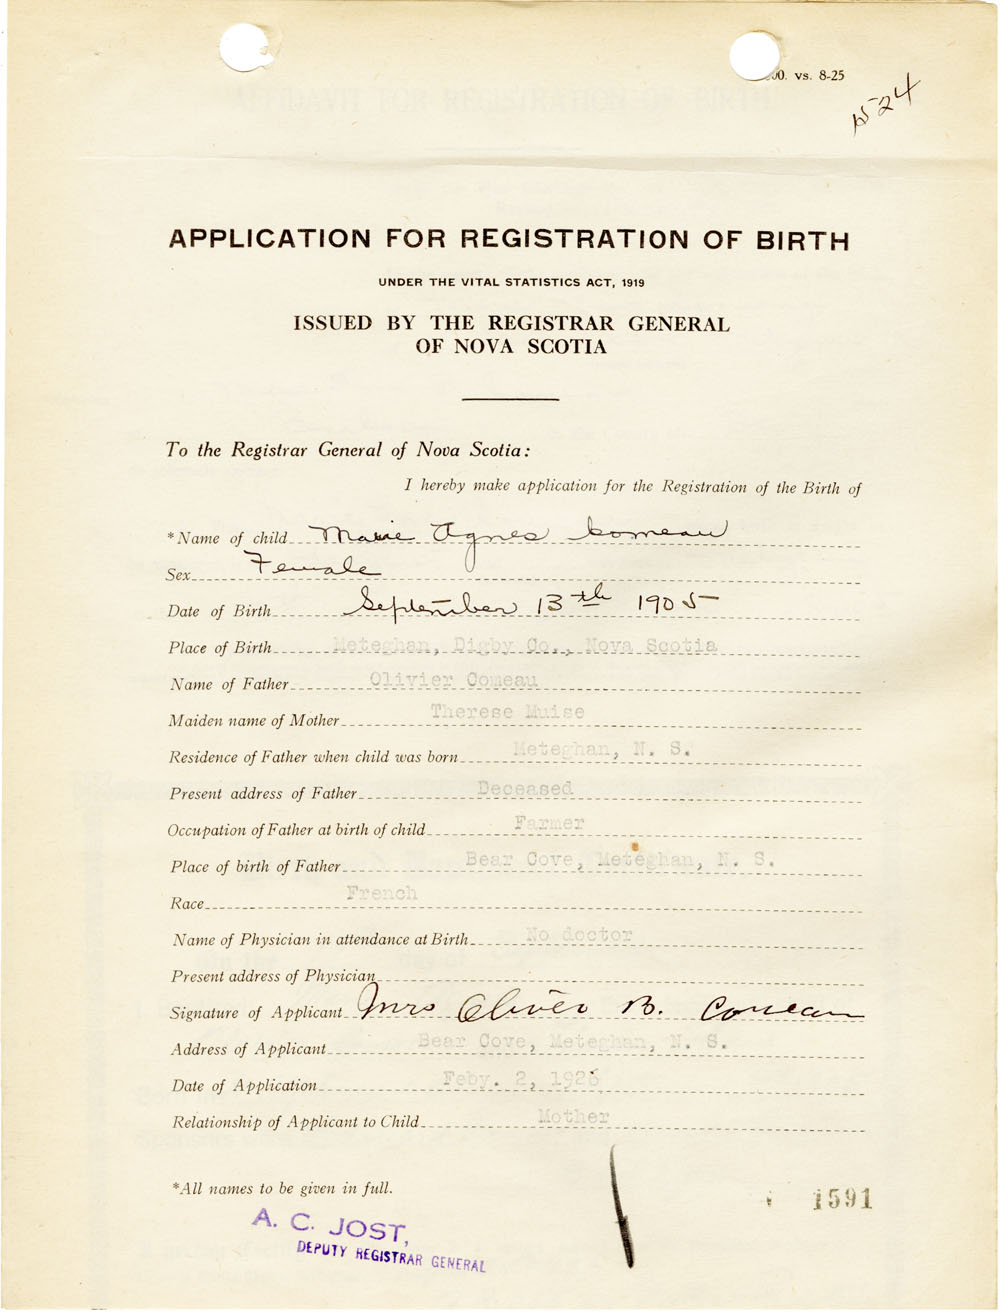 00. vs. 8-25
1524
APPLICATION FOR REGISTRATION OF BIRTH
UNDER THE VITAL STATISTICS ACT, 1919
ISSUED BY THE REGISTRAR GENERAL
OF NOVA SCOTIA
To the Registrar General of Nova Scotia:
I hereby make application for the Registration of the Birth of
*Name of child Marie Agnes Comeau
Sex Female
Date of Birth September 13th 1905
Place of Birth Meteghan, Digby Co., Nova Scotia
Name of Father Olivier Comeau
Maiden name of Mother Therese Muise
Residence of Father when child was born Meteghan, N. S.
Present address of Father Deceased
Occupation of Father at birth of child Farmer
Place of birth of Father Bear Cove, Meteghan, N. S.
Race French
Name of Physician in attendance at Birth No doctor
Present address of Physician
Signature of Applicant Mrs Oliver B. Comeau
Address of Applicant Bear Cove, Meteghan, N. S.
Date of Application Feby. 2, 1926
Relationship of Applicant to Child Mother
*All names to be given in full.
1591
A. C. JOST,
DEPUTY REGISTRAR GENERAL